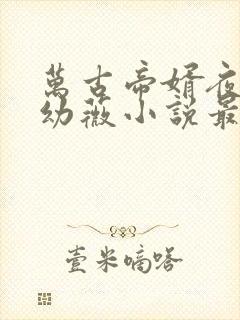 萬古帝婿夜
幼薇小說最
壹米嘀嗒